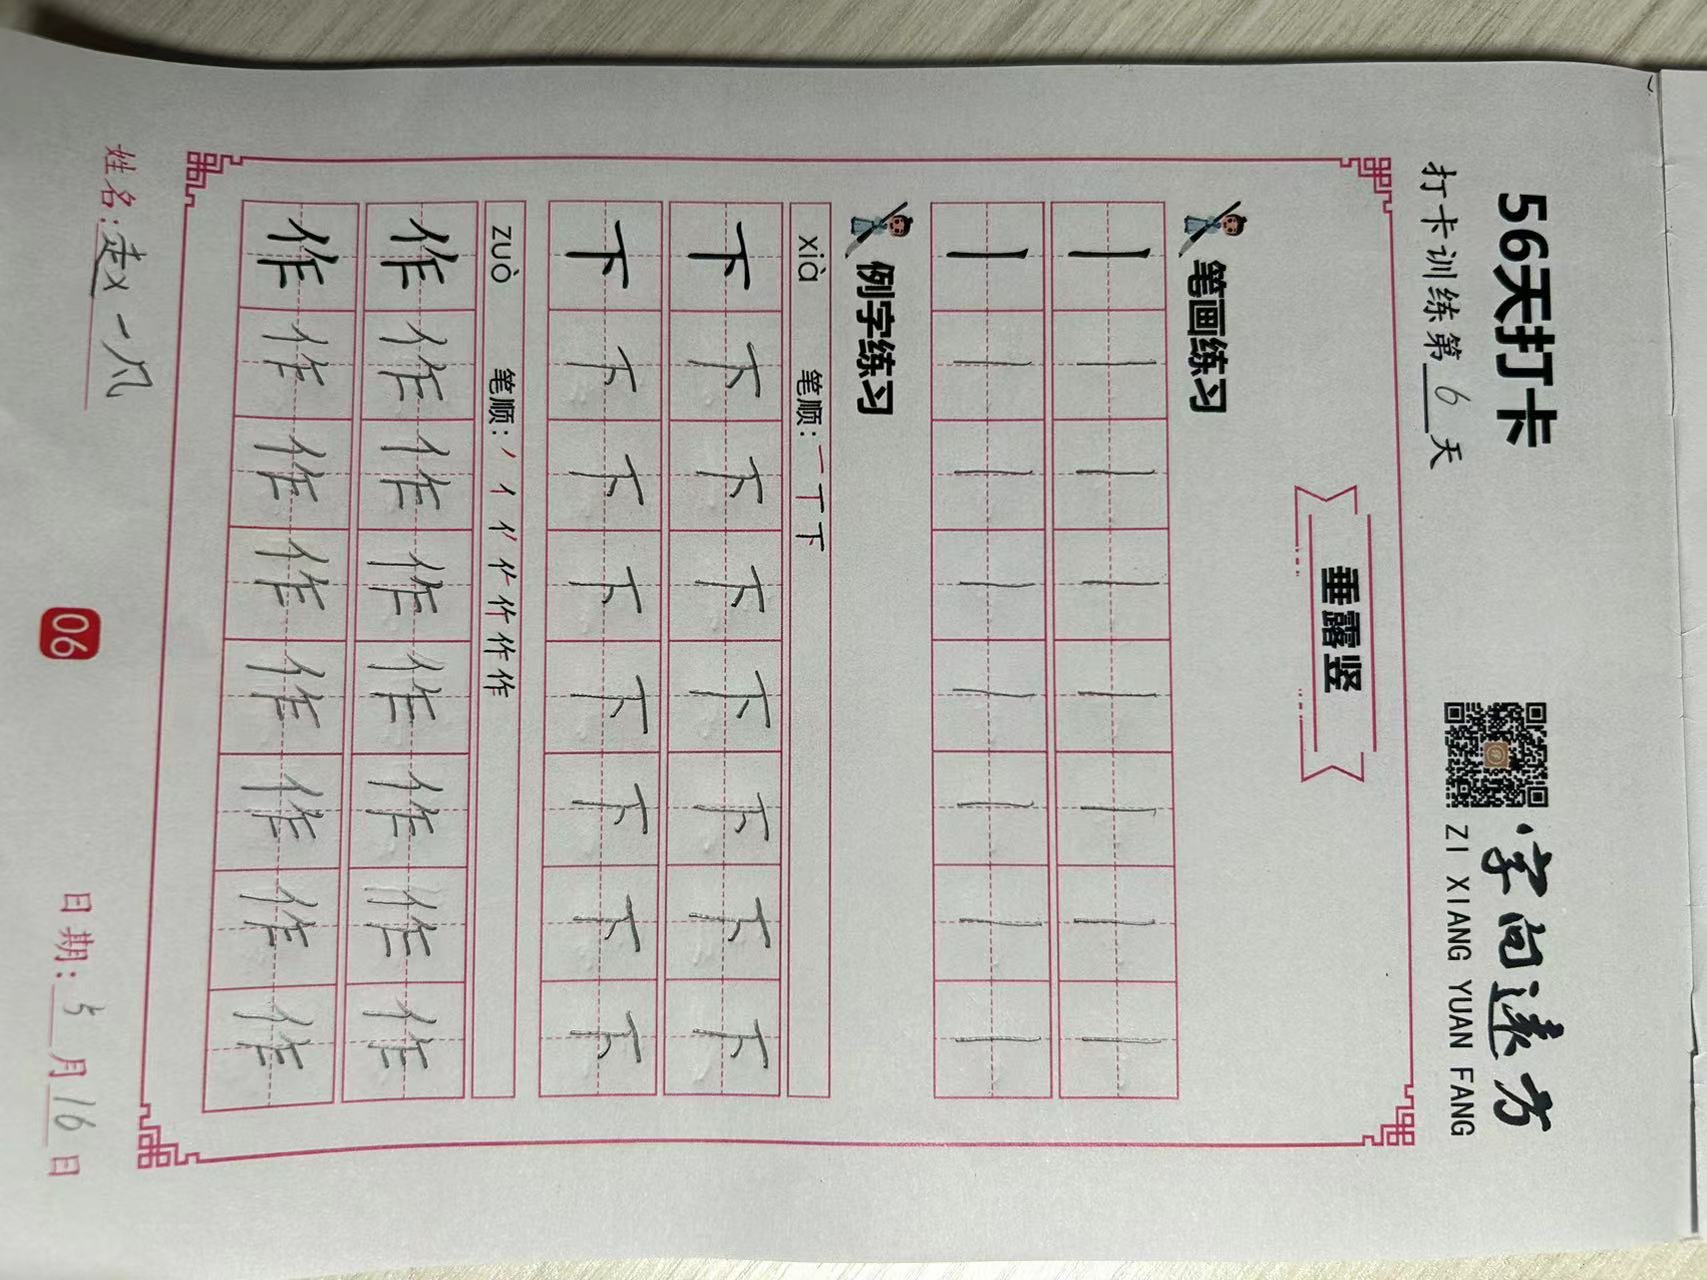 56天打卡
打卡训练第6天
字向远方
ZI XIANG YUAN FANG
垂露竖
笔画练习
丨丨丨丨丨丨丨丨
丨丨丨丨丨丨丨丨
例字练习
xià 笔顺:一丅下
下下下下下下下下
下下下下下下下下
zuò 笔顺:丿亻亻作作作
作作作作作作作作
作作作作作作作作
姓名:赵一凡
日期:5月16日
06